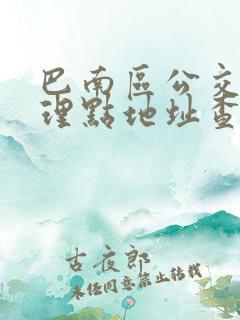 巴南區公交
理點地址查
古夜郎
未经同意禁止转载